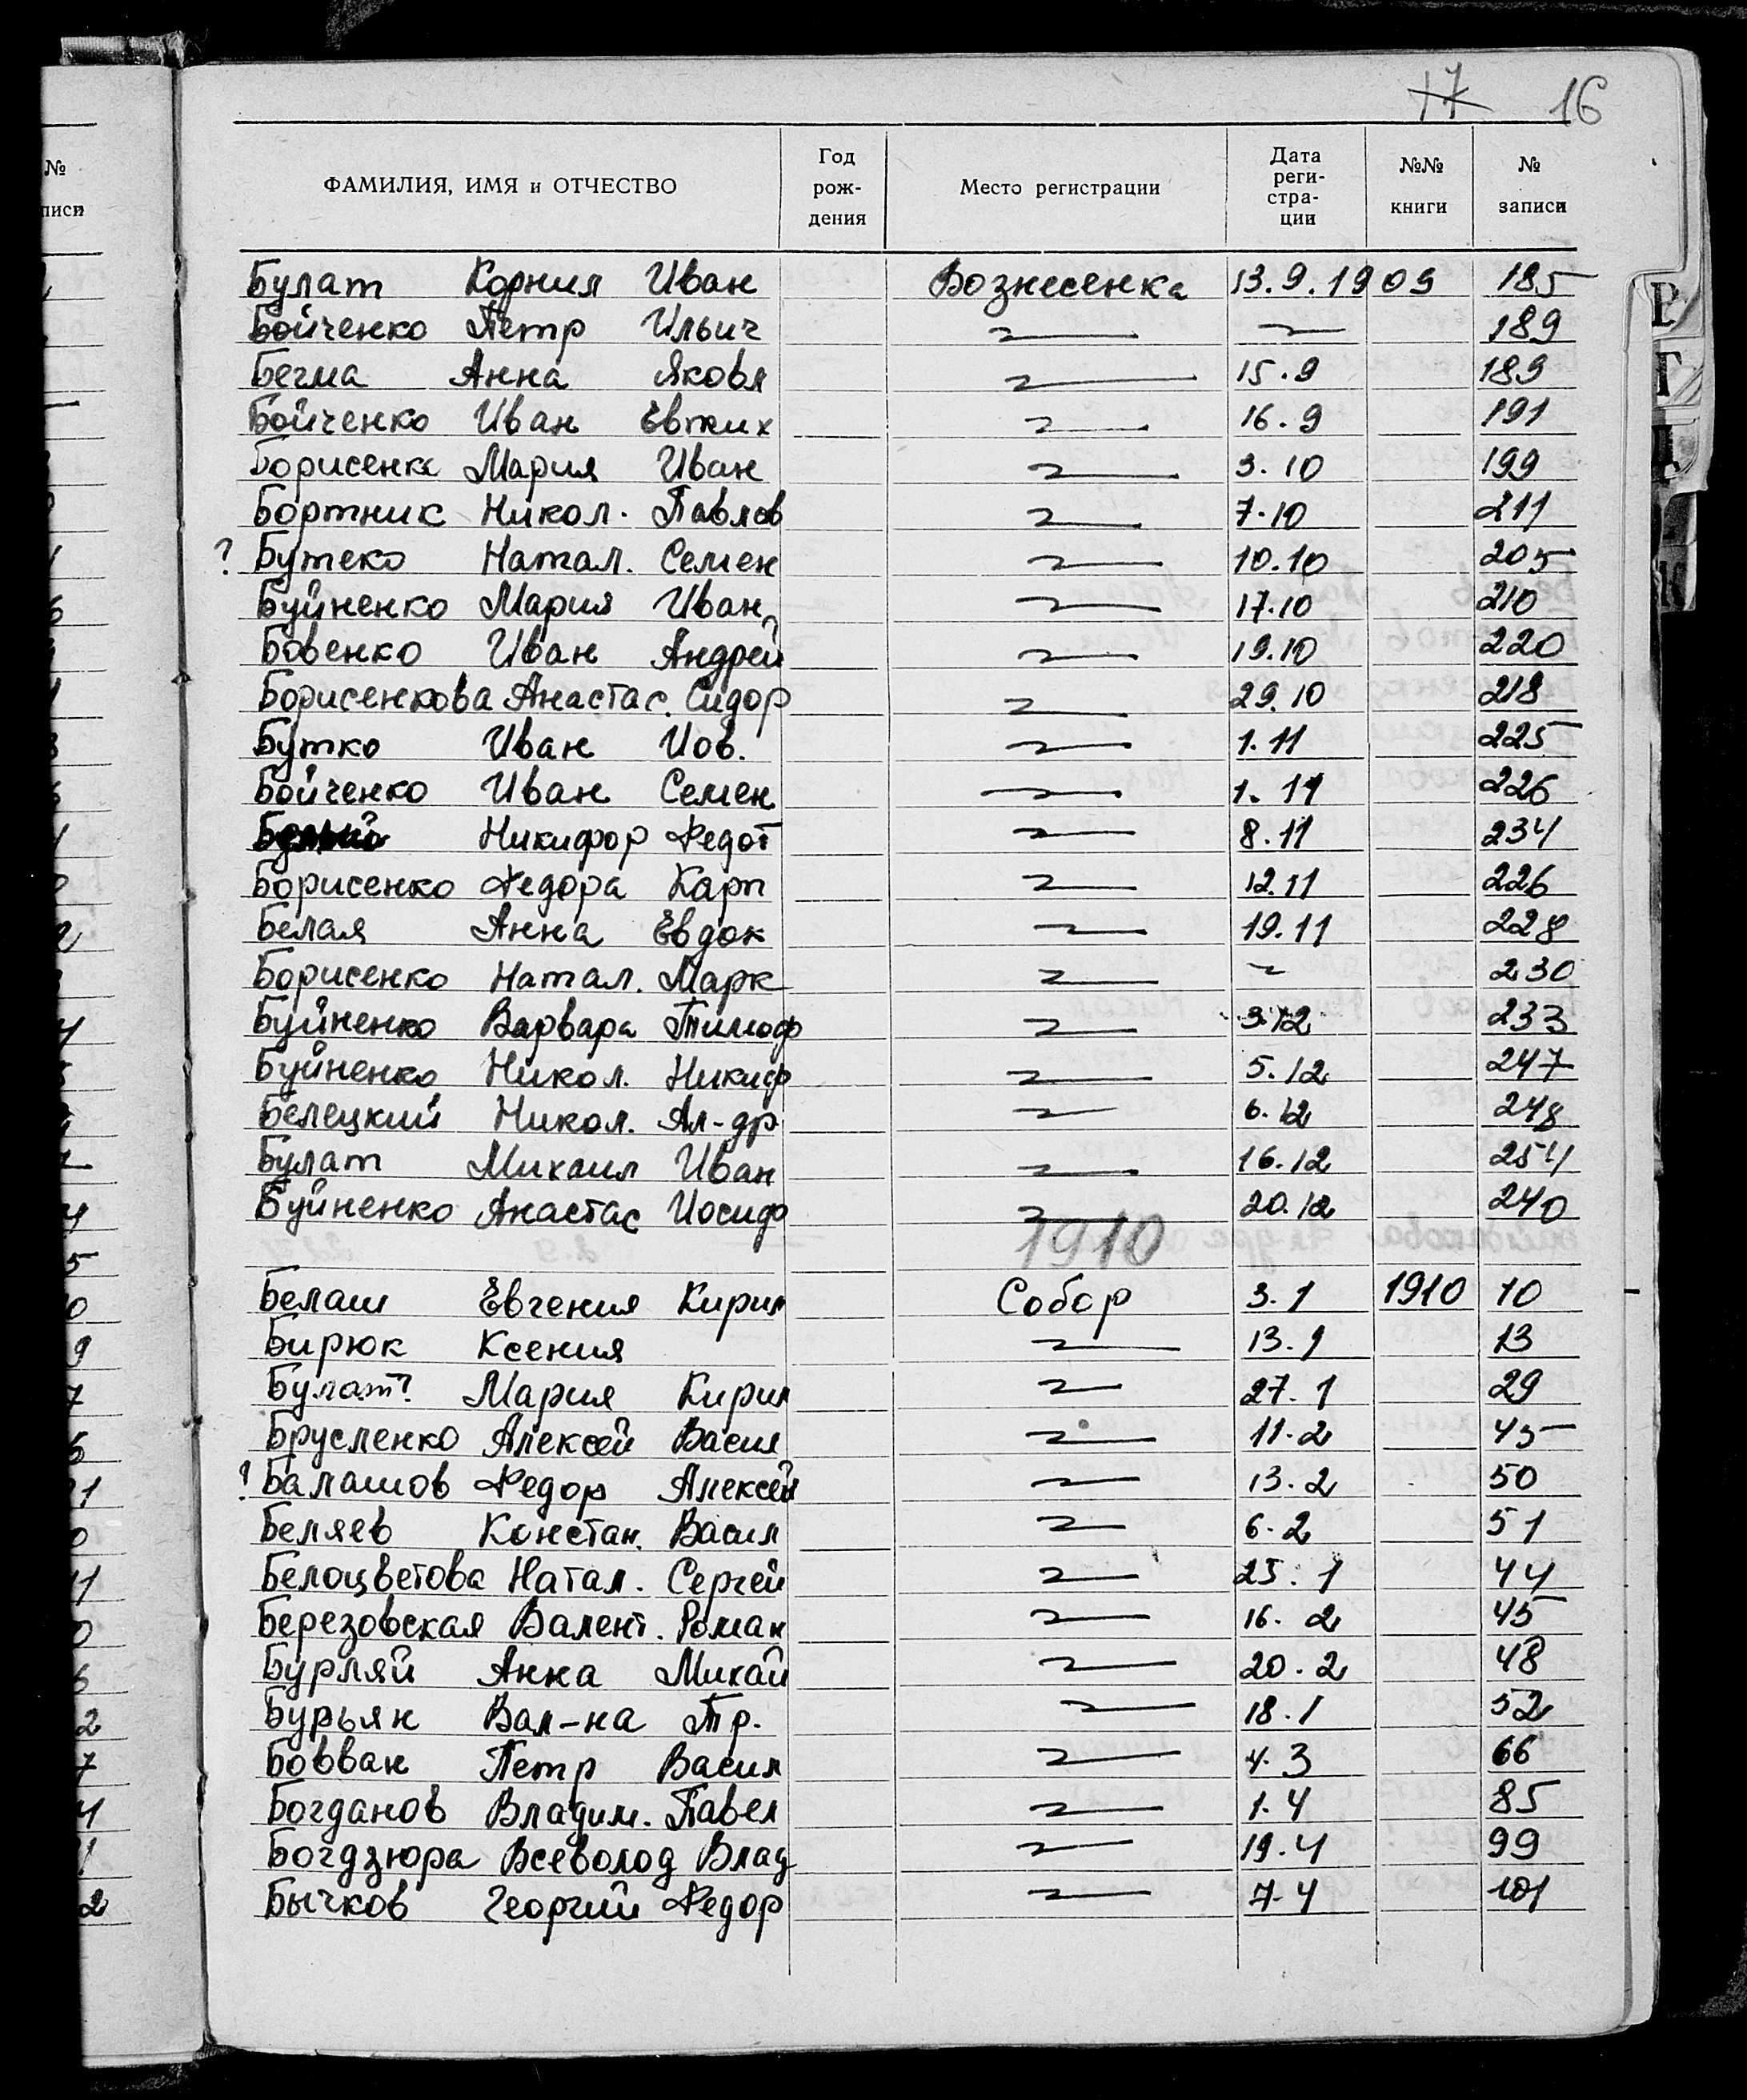 17 16
ФАМИЛИЯ, ИМЯ и ОТЧЕСТВО Год рож- дения Место регистрации Дата реги- стра- ции №№ книги № записи
Булат Корнил Иван Вознесенка 13.9.1909 185
Бойченко Петр Ильич 189
Бегма Анна Яковл 15.9 189
Бойченко Иван Евтих 16.9 191
Борисенко Мария Иван 3.10 199
Бортник Никол. Павлов 7.10 211
? Бутеко Натал. Семен 10.10 205
Буйненко Мария Иван 17.10 210
Бовенко Иван Андрей 19.10 220
Борисенкова Анастас. Сидор 29.10 218
Бутко Иван Иов. 1.11 225
Бойченко Иван Семен 1.11 226
Никифор Федот 8.11 234
Борисенко Федора Карп 12.11 226
Белая Анна Евдок 19.11 228
Борисенко Натал. Марк 230
Буйненко Варвара Тимоф 3.12 233
Буйненко Никол. Никиф 5.12 247
Белецкий Никол. Ал-др 6.12 248
Булат Михаил Иван 16.12 254
Буйненко Анастас Иосиф 20.12 240
1910
Белаш Евгения Кирил Собор 3.1 1910 10
Бирюк Ксения 13.1 13
Булат? Мария Кирил 27.1 29
Брусленко Алексей Васил 11.2 45
? Балашов Федор Алексей 13.2 50
Беляев Констан. Васил 6.2 51
Белоцветова Натал. Сергей 25.1 44
Березовская Валент. Роман 16.2 45
Бурляй Анна Михай 20.2 48
Бурьян Вал-на Тр. 18.1 52
Бовван Петр Васил 4.3 66
Богданов Владим. Павел 1.4 85
Богдзюра Всеволод Влад 19.4 99
Бычков Георгий Федор 7.4 101
№
писи